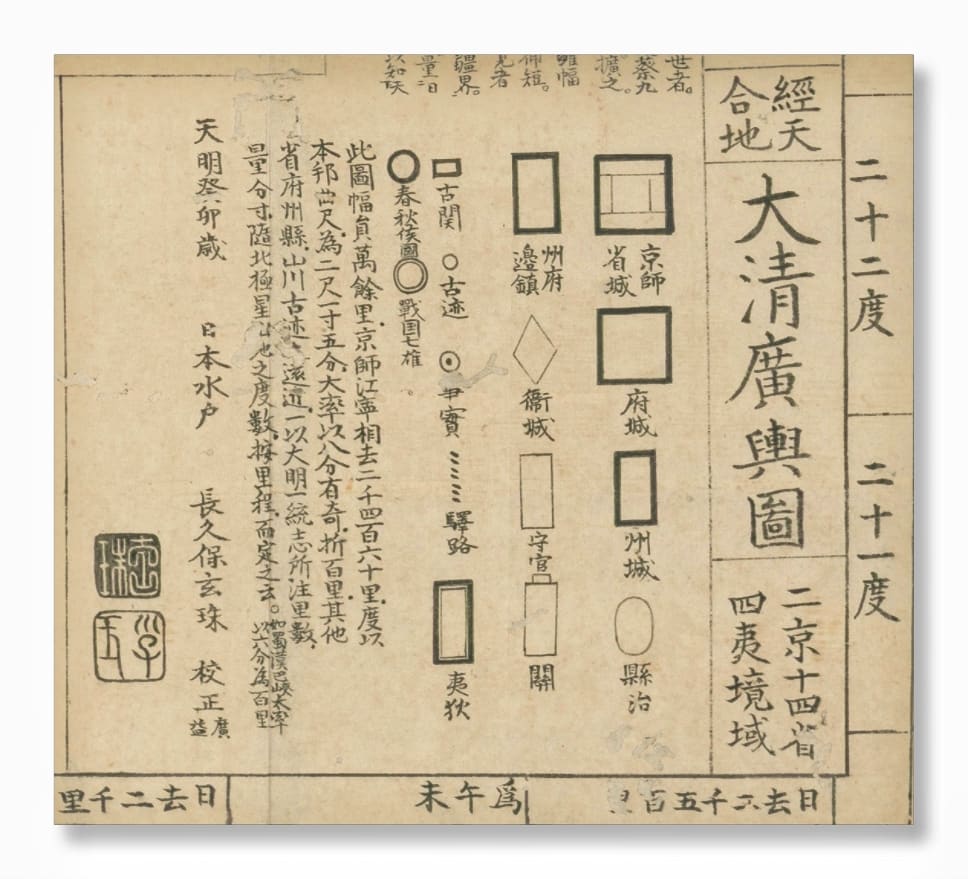 二十二度
二十一度
經天
合地
大清廣輿圖
二京十四省
四夷境域
世者。
蔡九
擴之。
雖幅
短。
者
疆界。
以知天
京師
省城
府城
州城
縣治
州府
邊鎮
衙城
守官
關
古関
古迹
事實
驛路
夷狄
春秋侯國
戰国七雄
此圖幅員萬餘里京師江寧相去二千四百六十里度以
本邦曲尺為二尺一寸五分大率以八分有奇折百里其他
省府州縣山川古迹遠近一以大明一統志所注里數
量分寸隨北極星出地之度數按里程而定之云。
如蜀漢巴峽大率
以六分為百里
天明癸卯歳
日本水户
長久保玄珠
校正
廣
益
日去二千五百里
爲午未
日去二千里